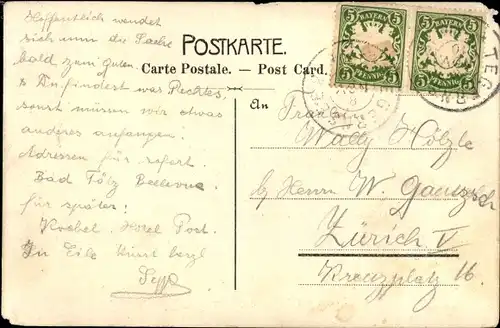 Hoffentlich wendet
sich nun die Sache
bald zum guten.
Du findest was Rechtes,
sonst müssen wir etwas
anderes anfangen!
Adressen für sofort
Bad Tölz Bellevue
für später:
Kochel. Hotel Post.
In Eile Kurt herzl
Sepp
POSTKARTE.
Carte Postale. — Post Card.
BAYERN
5 5
PFENNIG
BAYERN
5 5
PFENNIG
An Fräulein
Wally Hölzle
b/ Herrn W.
Zürich V
Kreuzplatz 16.